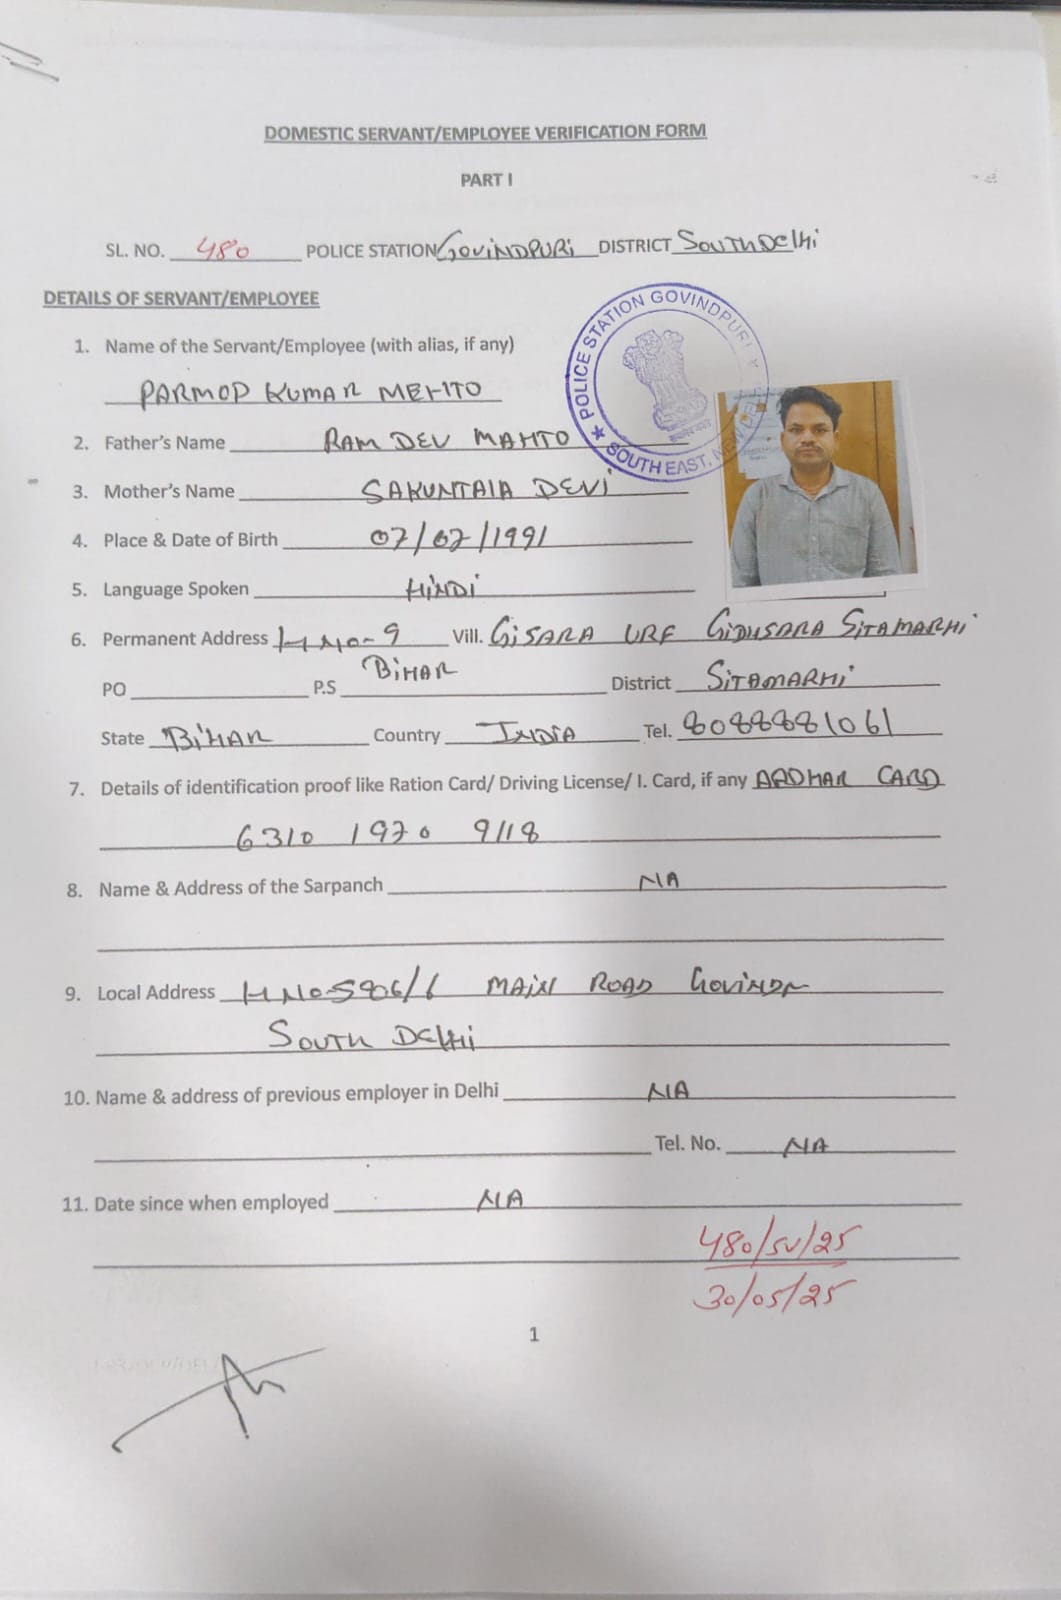 DOMESTIC SERVANT/EMPLOYEE VERIFICATION FORM
PART I
SL. NO. 480 POLICE STATION GOVINDPURI DISTRICT SOUTH DELHI
DETAILS OF SERVANT/EMPLOYEE
POLICE STATION GOVINDPURI ★ SOUTH EAST, NEW DEL
1. Name of the Servant/Employee (with alias, if any)
PARMOD KUMAR MEHTO
2. Father's Name RAM DEV MAHTO
3. Mother's Name SAKUNTALA DEVI
4. Place & Date of Birth 07/07/1991
5. Language Spoken HINDI
6. Permanent Address H NO-9 Vill. GISARA URF GIDHSARA SITAMARHI
BIHAR
PO P.S District SITAMARHI
State BIHAR Country INDIA Tel. 8088881061
7. Details of identification proof like Ration Card/ Driving License/ I. Card, if any AADHAR CARD
6310 1970 9118
8. Name & Address of the Sarpanch NA
9. Local Address H NO-5906/6 MAIN ROAD
SOUTH DELHI
10. Name & address of previous employer in Delhi NA
Tel. No. NA
11. Date since when employed NA
480/SV/25
30/05/25
1